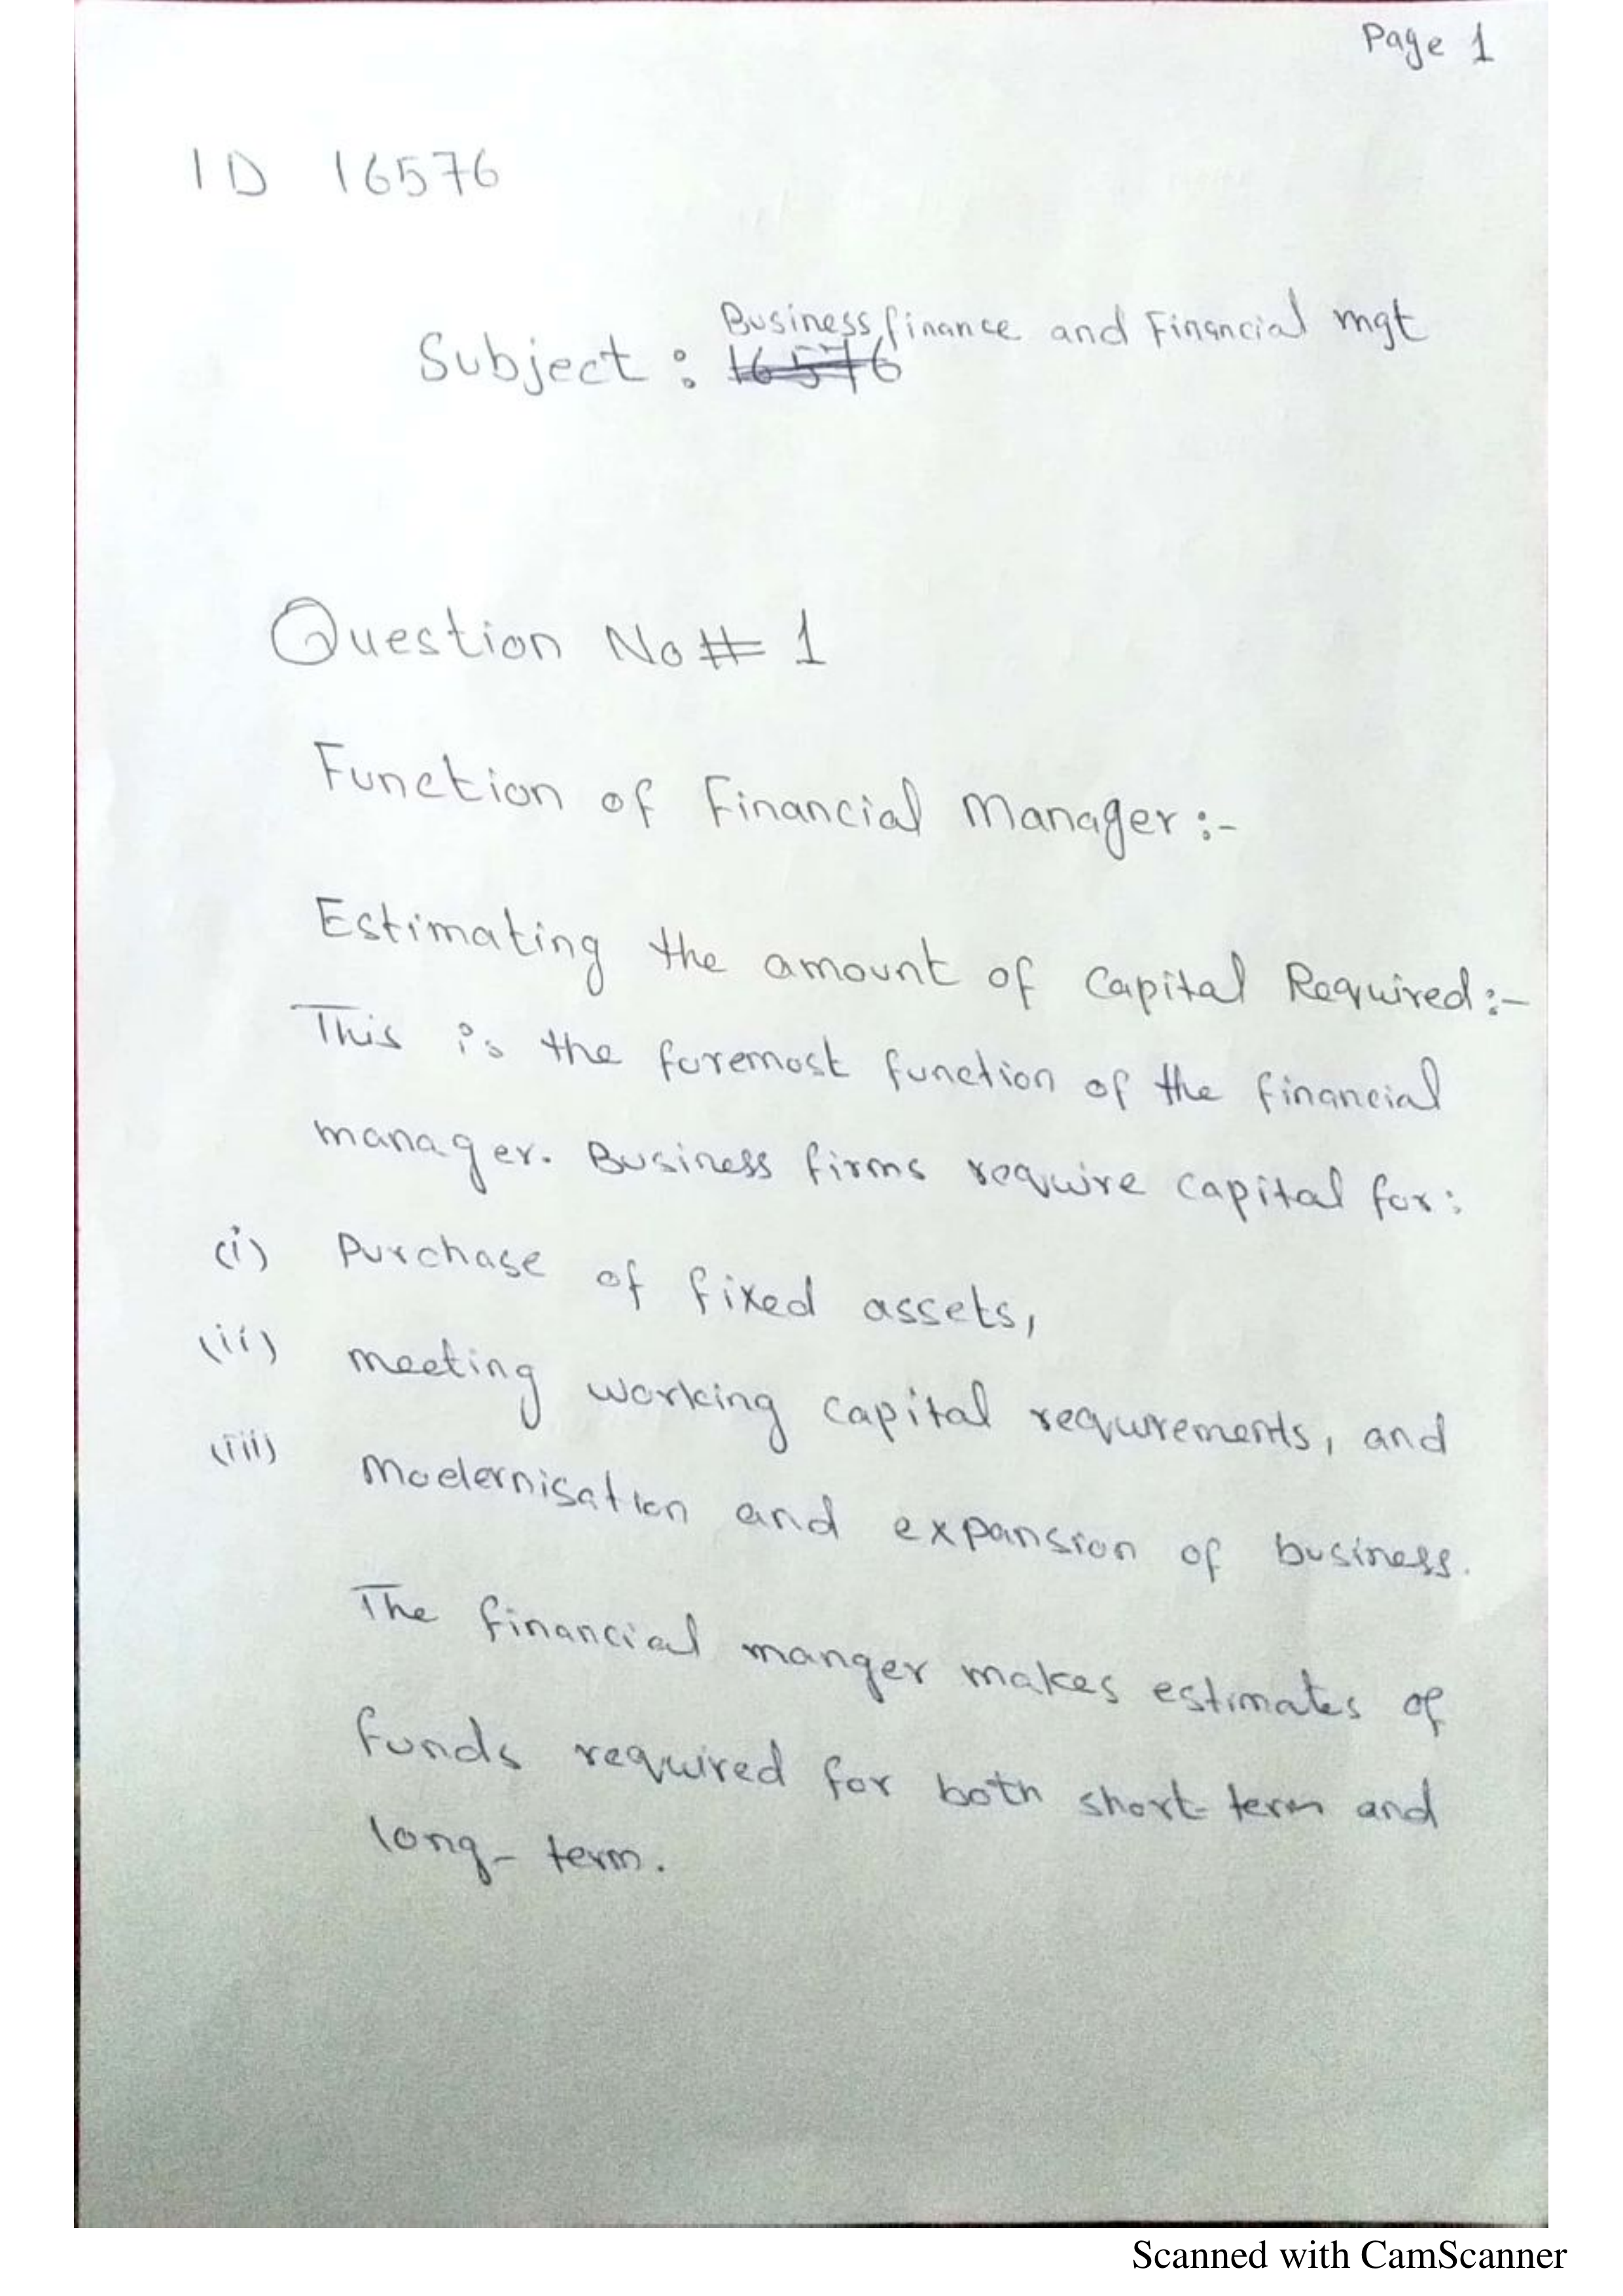 Page 1
ID 16576
Business finance and Financial mgt
Subject : 16576
Question No # 1
Function of Financial Manager :-
Estimating the amount of Capital Required :-
This is the foremost function of the financial
manager. Business firms require capital for :
(i) Purchase of fixed assets,
(ii) meeting working capital requrements, and
(iii) Modernisation and expansion of business.
The financial manger makes estimates of
funds required for both short-term and
long-term.
Scanned with CamScanner